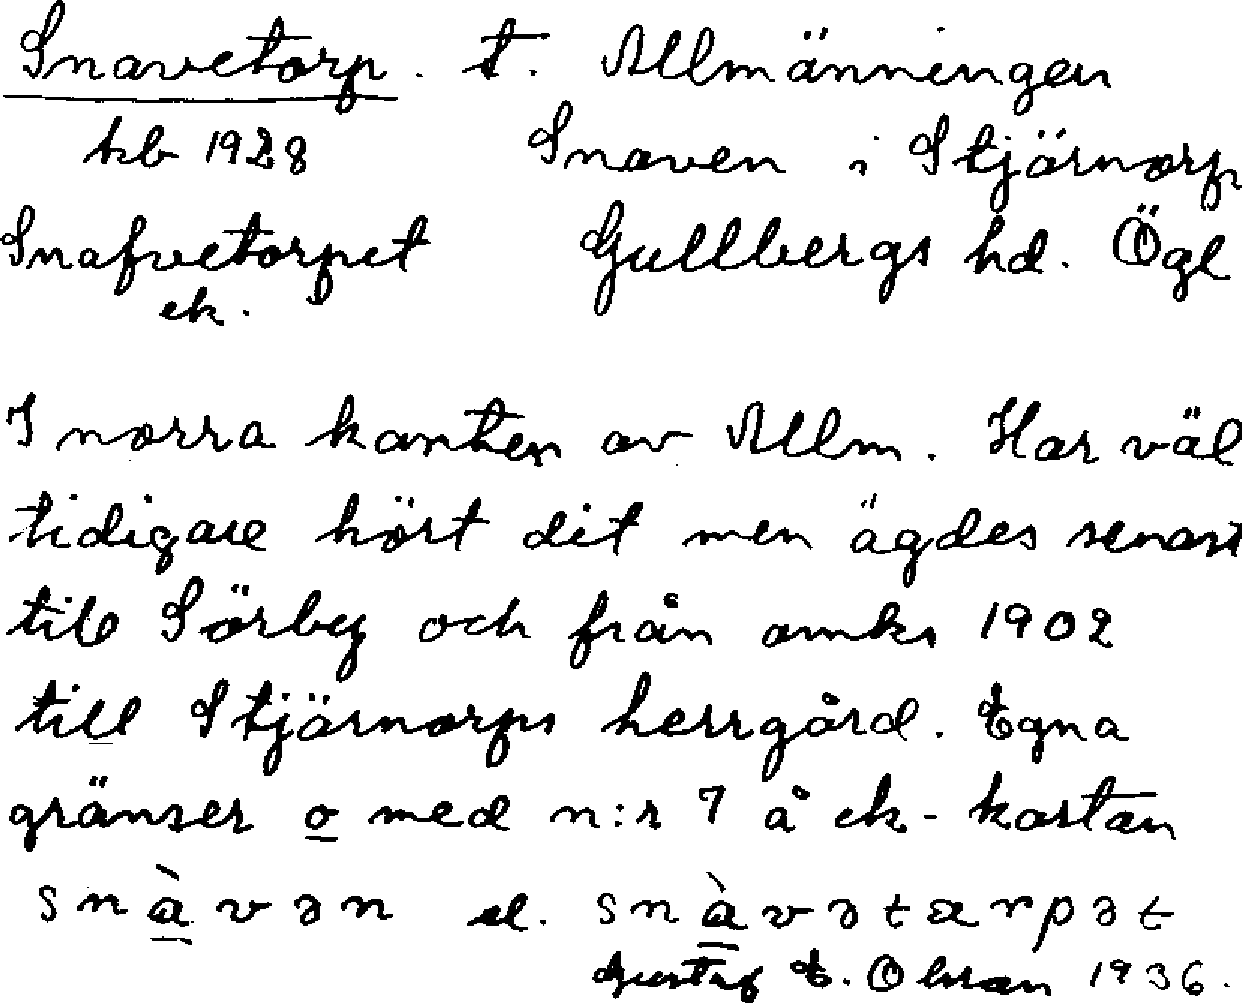 Snavetorp. t. Allmänningen
kb 1928 Snaven i Stjärnorp
Snafvetorpet Gullbergs hd. Ögl
ek.
I norra kanten av Allm. Har väl
tidigare hört dit men ägdes senast
till Sörby och från omkr 1902
till Stjärnorps herrgård. Egna
gränser o med n:r 7 å ek-kartan
snàvən el. snàvətarpət
Gustaf E. Olsson 1936.